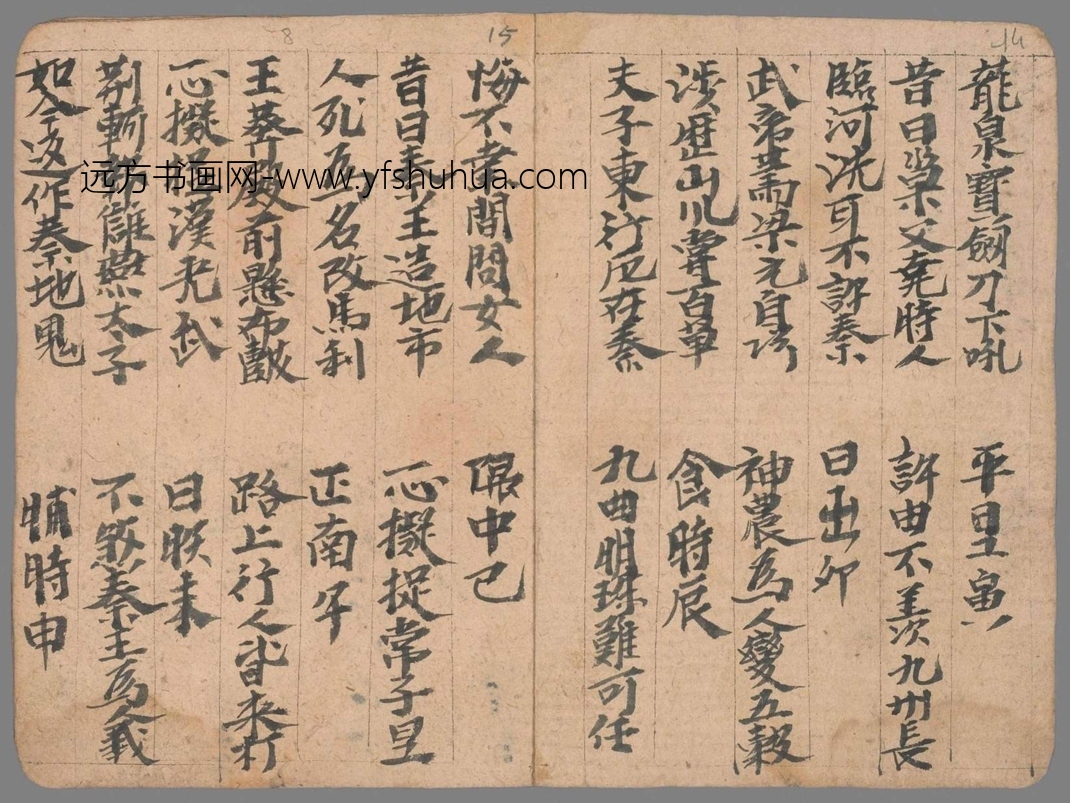 14
龍泉寶劍刀下吼 平里寅
昔日巢父堯時人 許由不羨次九州長
臨河洗耳不許秦 日出卯
武帝蕭梁元自誇 神農為人變五穀
涉歷山川嘗百草 食時辰
夫子東行厄在秦 九曲明珠難可任
15
悔不幸間問女人 隅中巳
昔日秦王造地市 心擬捉常子皇
人死為名改馬利 正南午
8
王莽殿前懸布鼓 路上行人皆來打
心擬捉漢光武 日昳未
荊軻報讎燕太子 不煞秦王為義
如今返作秦地鬼 晡時申
远方书画网-www.yfshuhua.com